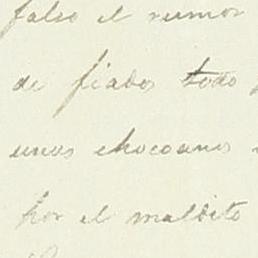 falso el rumor
de fiados todo
unos chocoanos
por el maldito